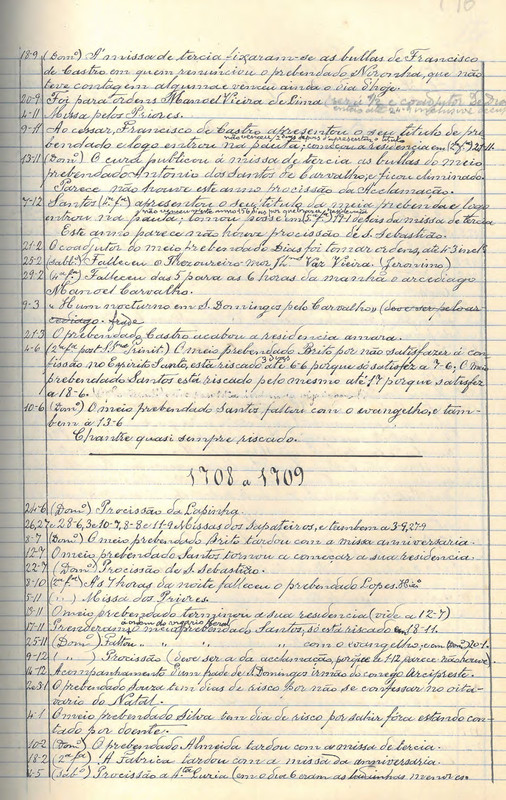 18-9 (Domº) Á missa de tercia fixaram-se as bullas de Francisco
de Castro em quem renunciou o prebendado Noronha, que não
teve conta em alguma e venceu ainda o dia d'hoje.
20-9 Foi para ordens Manoel Vieira de Lima
4-11 Missa pelos Priores.
9-11 Ao cessar, Francisco de Castro apresentou o seu titulo de pre
bendado e logo entrou na pauta; começou a residencia em
13-11 (Domº) O cura publicou á missa de tercia as bullas do meio
prebendado Antonio dos Santos de Carvalho, e ficou eliminado.
Parece não houve este anno procissão da Acclamação.
7-12 Santos (4ª fª) apresentou o seu titulo da meia prebenda e logo
entrou na pauta; tomou posse em (5ª fª) 19-1 depois da missa de tercia
Este anno parece não houve procissão de S. Sebastião.
21-2 O coadjutor do meio prebendado Dias foi tomar ordens, até 4-3 incl.
25-2 (sabbº) Falleceu o Thesoureiro mor Jmº Vaz Vieira (Jeronimo)
29-2 (4ª fª) Falleceu das 5 para as 6 horas da manhã o arcediago
Manoel Carvalho.
9-3 "Hum nocturno em S. Domingos pelo Carvalho" (deve ser pelo ar-
cediago. frade
21-3 O prebendado Castro acabou a residencia amara.
4-6 (2ª fª post S.ma Trinit.) O meio prebendado Brito por não satisfazer á con-
fissão no Espirito Santo, está riscado 3 dias até 6-6 porque só satisfez a 7-6; O meio
prebendado Santos está riscado pelo mesmo até 17 porque satisfez
a 18-6.
10-6 (Domº) O meio prebendado Santos faltou com o evangelho, e tam-
bem a 13-6
Chantre quasi sempre riscado.
1708 a 1709
24-6 (Domº) Procissão da Lapinha.
26, 27 e 28-6, 3 e 10-7, 8-8 e 11-9 Missas dos Sapateiros, e tambem a 3-9, 27-9
8-7 (Domº) O meio prebendado Brito tardou com a missa anniversaria.
12-7 O meio prebendado Santos tornou a começar a sua residencia.
22-7 (Domº) Procissão de S. Sebastião.
8-10 (2ª fª) Ás 7 horas da noite falleceu o prebendado Lopes.
5-11 (") Missa dos Priores.
13-11 O meio prebendado terminou a sua residencia (vide a 12-7)
17-11 Prenderam á ordem do vigario geral o meio prebendado Santos, só está riscado em 18-11.
25-11 (Domº) Faltou " " " " com o evangelho, e em (Domº) 20-1.
9-12 ( " ) Procissão (deve ser a da acclamação, porque a 1-12 parece não houve).
14-12 Acompanhamento d'um frade de S. Domingos irmão do conego Arcipreste.
2-31 O prebendado Souza tem dias de risco por não se confessar no oita-
vario do Natal.
4-1 O meio prebendado Silva tem dia de risco por sahir fóra estando con-
tado por doente.
10-2 (Domº) O prebendado Almeida tardou com a missa de tercia.
18-2 (2ª fª) A Fabrica tardou com a missa da anniversaria.
4-5 (sabº) Procissão a Sta Luzia (em o dia 6 eram as ladainhas menores.